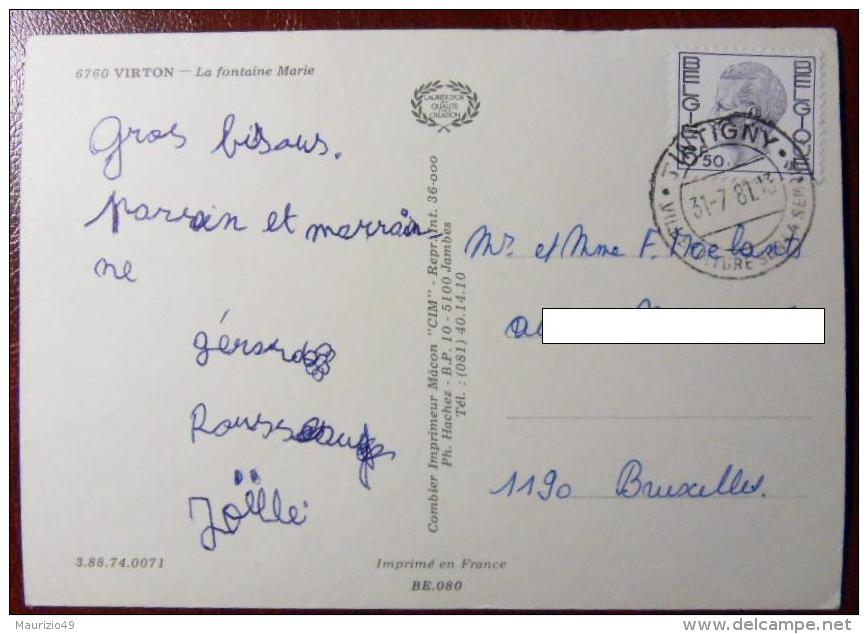 6760 VIRTON — La fontaine Marie
Gros bisous.
Parrain et marrain
ne
gérard
Joëlle
LAURIER D'OR
DE LA
QUALITÉ
CRÉATION
Combier Imprimeur Mâcon "CIM" - Repr. Int. 36-000
Ph. Hachez - B.P. 10 - 5100 Jambes
Tél. : (081) 40.14.10
BELGIE BELGIQUE
50
TINTIGNY
31-7 81
Mr et Mme F. Roelants
1190 Bruxelles.
3.88.74.0071
Imprimé en France
BE.080
Maurizio49
delcampe.net